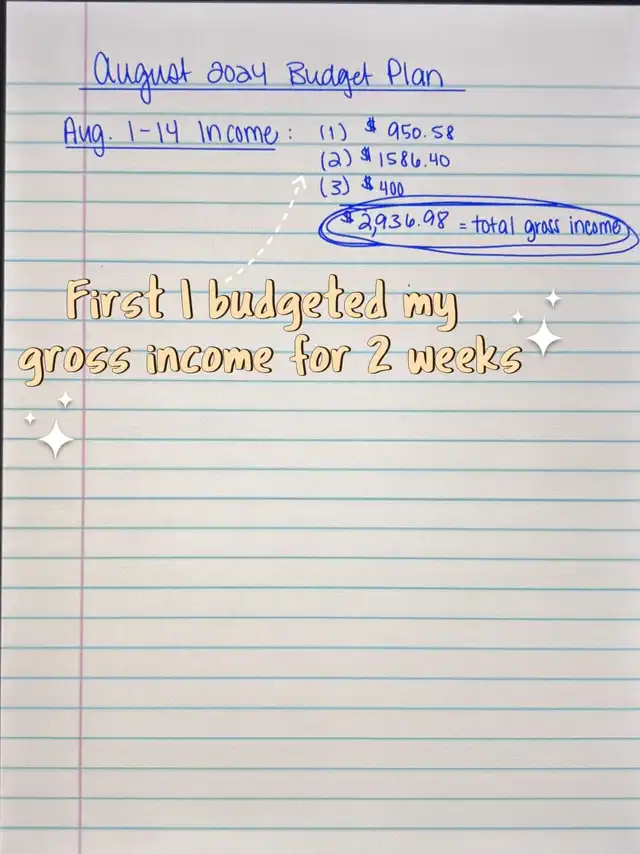 August 2024 Budget Plan
Aug. 1-14 Income: (1) $950.58
(2) $1586.40
(3) $400
$2,936.98 = total gross income
First I budgeted my
gross income for 2 weeks